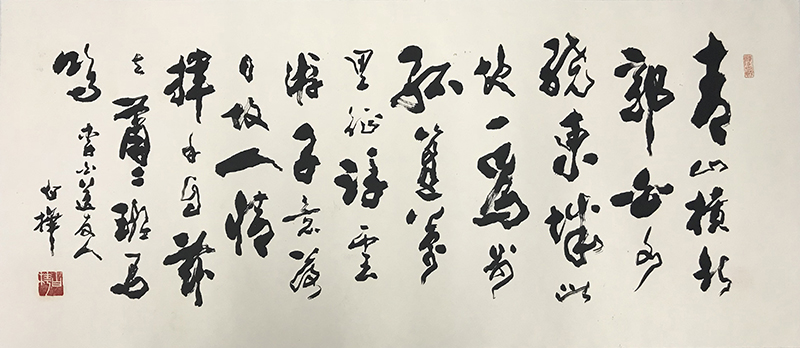 青山橫北
郭白水
繞東城此
地一為別
孤蓬萬
里征浮雲
游子意落
日故人情
揮手自茲
去蕭蕭班馬
鳴 李白送友人